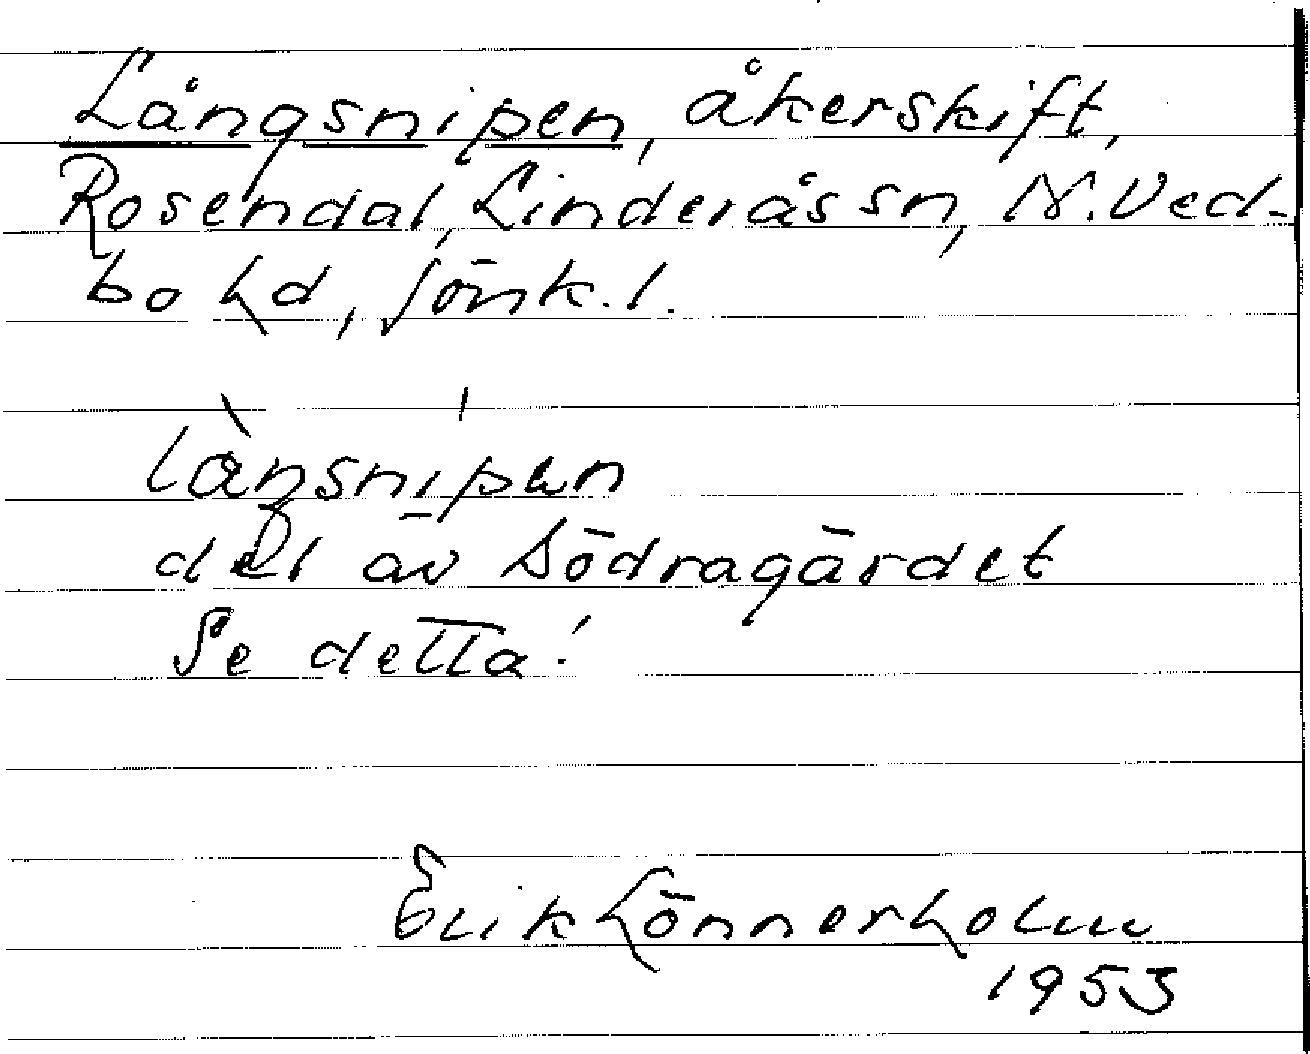 Långsnipen, åkerskift,
Rosendal, Linderås sn, N. Ved-
bo hd, Jönk. l.
làŋsnípen
del av Södragärdet
Se detta!
Erik Lönnerholm
1953